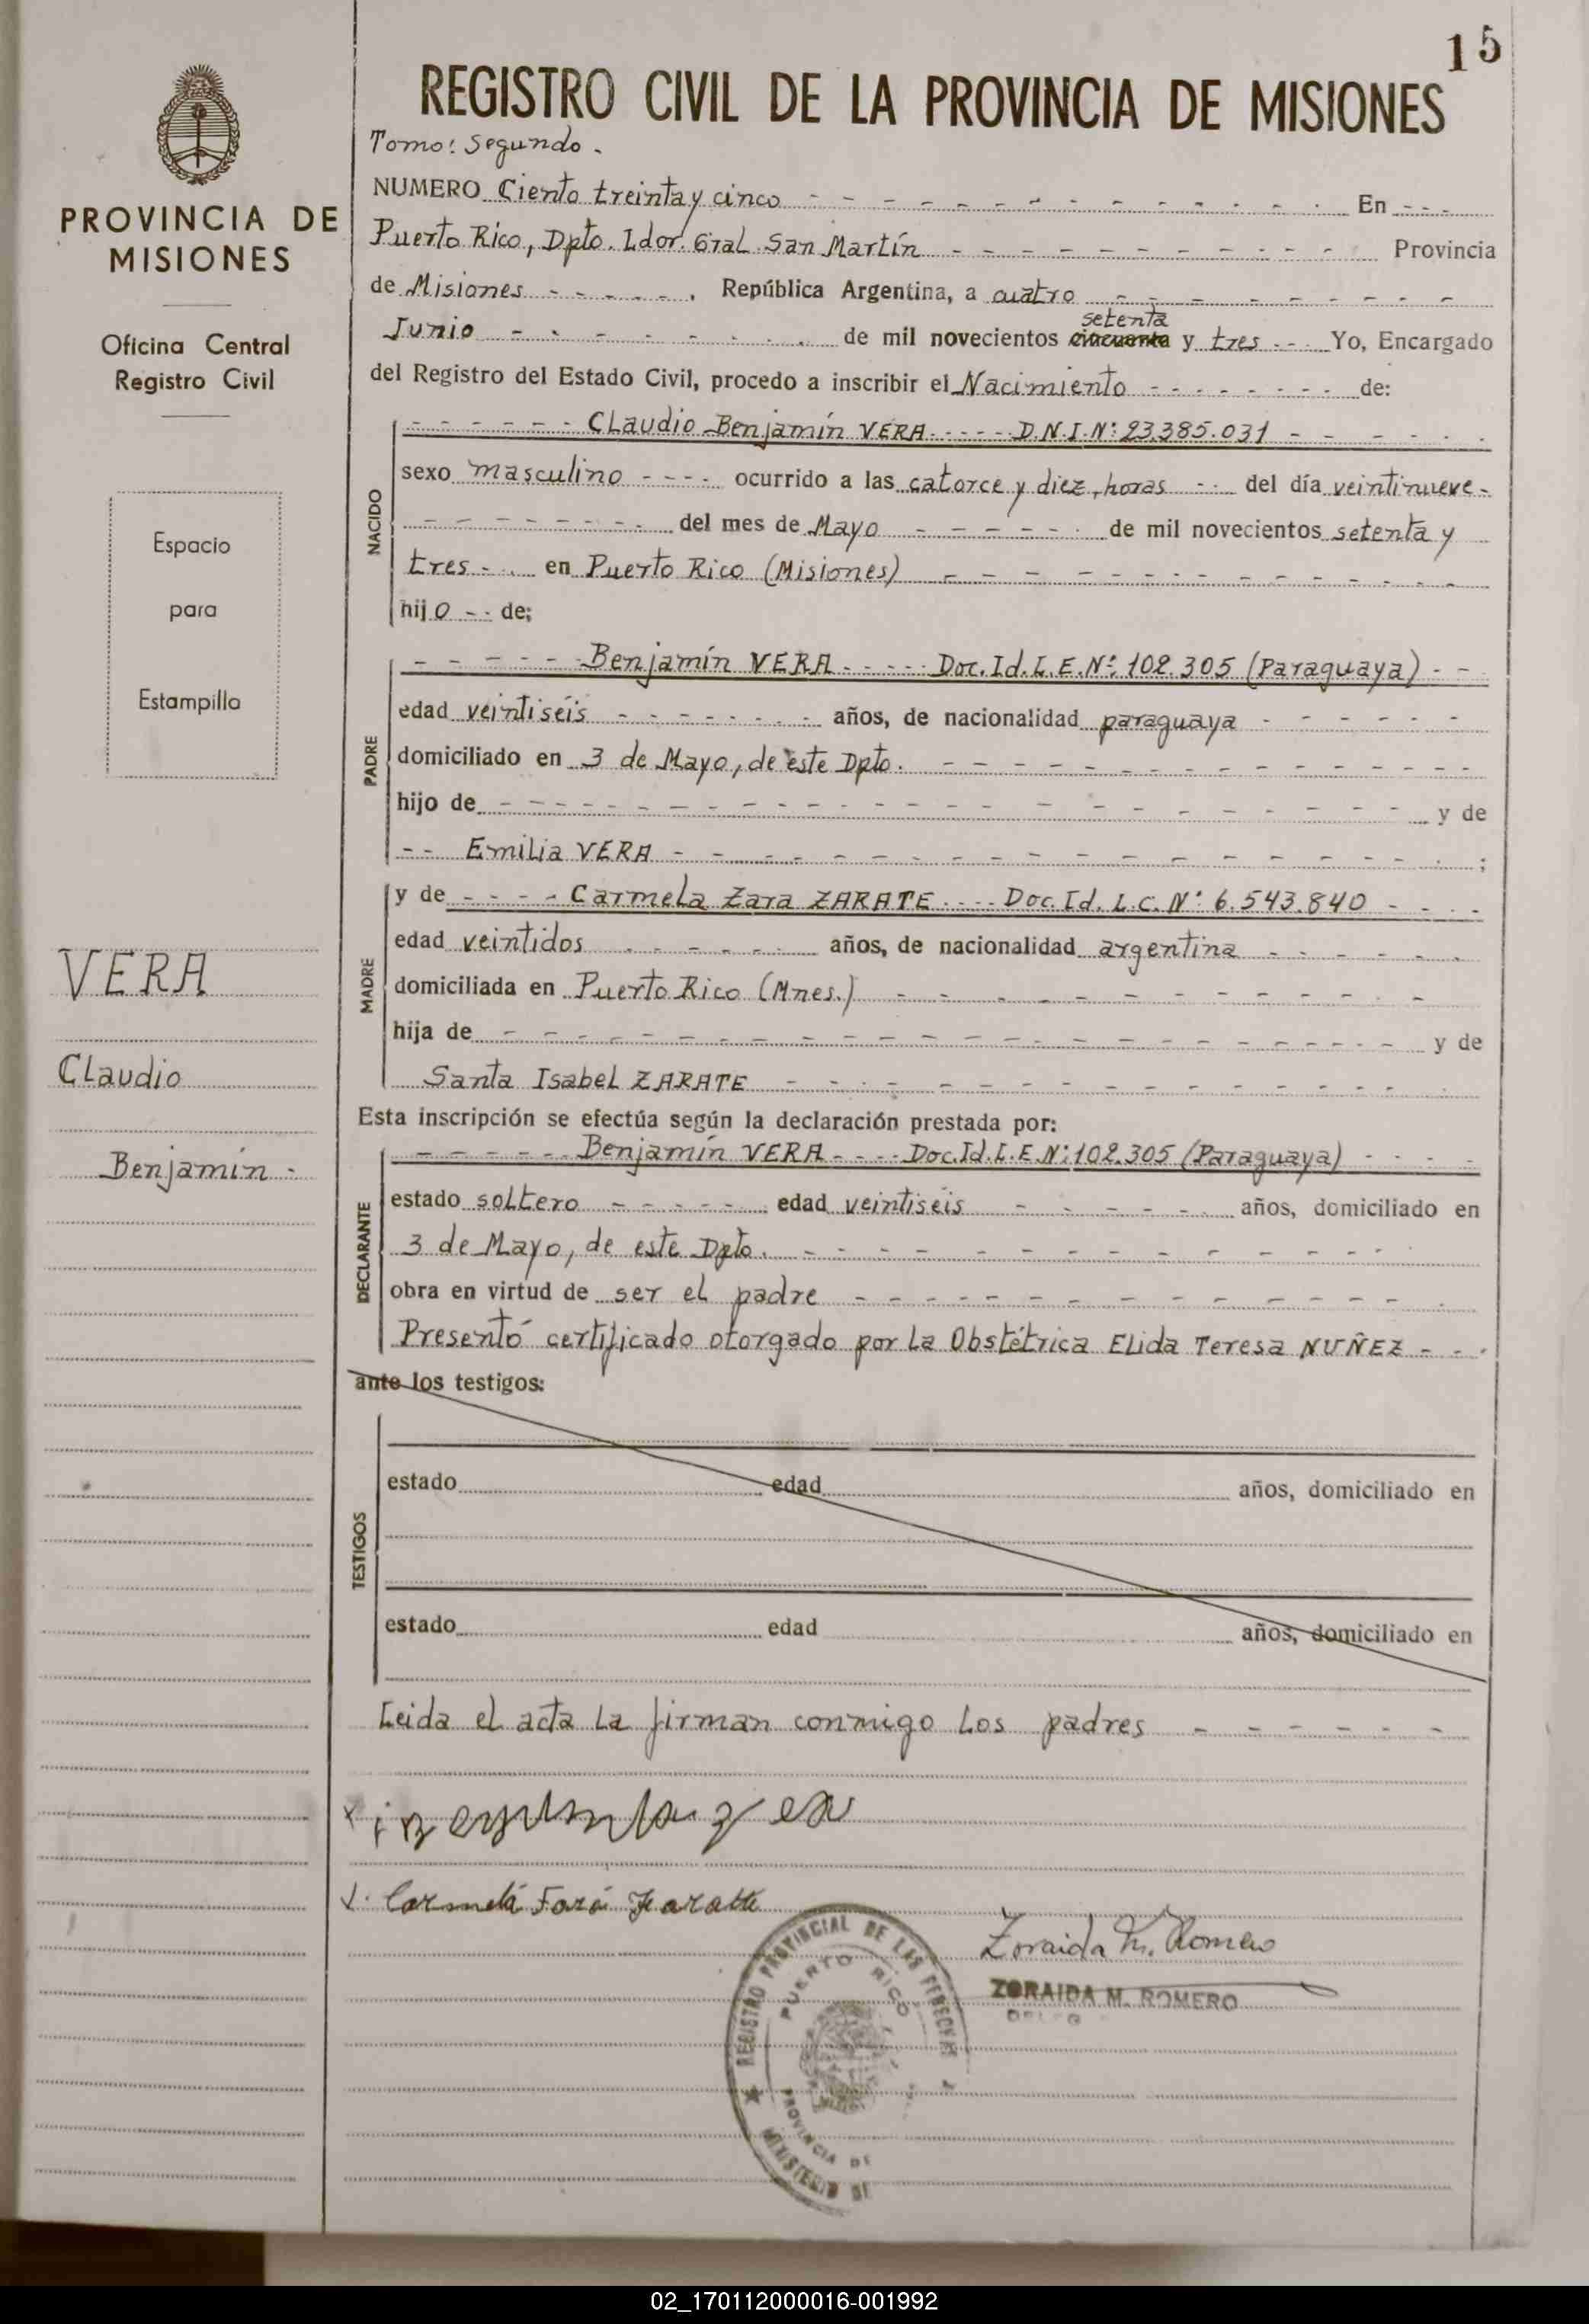 15
REGISTRO CIVIL DE LA PROVINCIA DE MISIONES
Tomo: Segundo.
NUMERO Ciento treinta y cinco En
Puerto Rico, Dpto. Ldor. Gral. San Martín Provincia
de Misiones , República Argentina, a cuatro
Junio de mil novecientos cincuenta setenta y tres Yo, Encargado
del Registro del Estado Civil, procedo a inscribir el Nacimiento de:
NACIDO
Claudio Benjamín VERA D.N.I.Nº 23.385.031
sexo masculino ocurrido a las catorce y diez, horas del día veintinueve
del mes de Mayo de mil novecientos setenta y
tres en Puerto Rico (Misiones)
hijo de;
PADRE
Benjamín VERA Doc. Id. L.E. Nº 102.305 (Paraguaya)
edad veintiséis años, de nacionalidad paraguaya
domiciliado en 3 de Mayo, de este Dpto.
hijo de y de
Emilia VERA ;
MADRE
y de Carmela Zara ZARATE Doc. Id. L.C. Nº 6.543.840
edad veintidos años, de nacionalidad argentina
domiciliada en Puerto Rico (Mnes.)
hija de y de
Santa Isabel ZARATE
Esta inscripción se efectúa según la declaración prestada por:
DECLARANTE
Benjamín VERA Doc. Id. L.E. Nº 102.305 (Paraguaya)
estado soltero edad veintiséis años, domiciliado en
3 de Mayo, de este Dpto.
obra en virtud de ser el padre
Presentó certificado otorgado por la Obstétrica Elida Teresa NUÑEZ
ante los testigos:
TESTIGOS
estado edad años, domiciliado en
estado edad años, domiciliado en
Leida el acta la firman conmigo los padres
Zoraida M. Romero
ZORAIDA M. ROMERO
REGISTRO PROVINCIAL DE LAS PERSONAS
PUERTO RICO
PROVINCIA DE
MINISTERIO DE
PROVINCIA DE
MISIONES
Oficina Central
Registro Civil
Espacio
para
Estampilla
VERA
Claudio
Benjamín
02_170112000016-001992